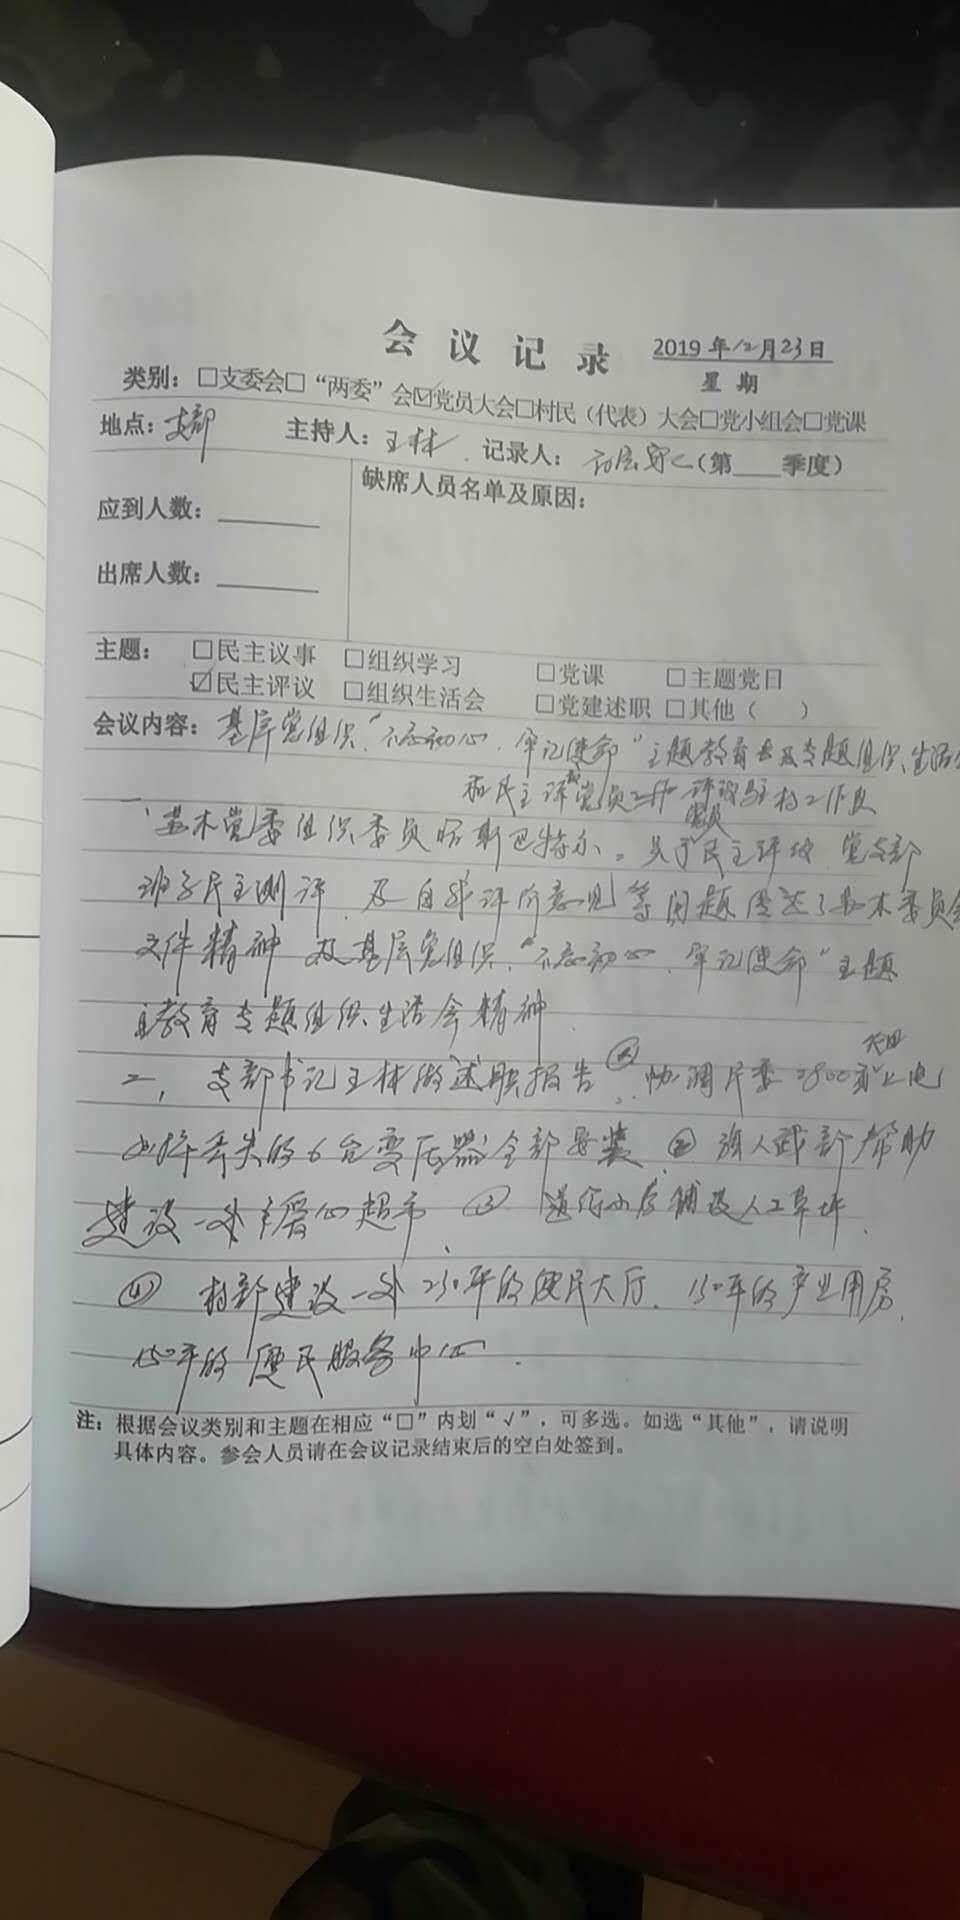 会议记录 2019年12月23日
星期
类别：□支委会□“两委”会☑党员大会□村民（代表）大会□党小组会□党课
地点：支部 主持人：王林 记录人： （第___季度）
应到人数：
缺席人员名单及原因：
出席人数：
主题： □民主议事 □组织学习 □党课 □主题党日
☑民主评议 □组织生活会 □党建述职 □其他（ ）
会议内容：基层党组织“不忘初心、牢记使命”主题教育 专题组织生活会
和民主评议党员 评议驻村工作队
党员
一、苏木党委组织委员 斯巴特尔。关于民主评议 党支部
班子民主测评 及自我评价意见等问题传达了苏木委员会
文件精神 及基层党组织“不忘初心、牢记使命”主题
教育专题组织生活会精神
二、支部书记王林做述职报告① 协调 2800亩 电
丢失的6台变压器全部安装 ② 人武部帮助
建设一处 爱心超市 ③ 铺设人工草坪
④ 村部建设一处230平的便民大厅、150平的产业用房
150平的便民服务中心
注：根据会议类别和主题在相应“□”内划“√”，可多选。如选“其他”，请说明
具体内容。参会人员请在会议记录结束后的空白处签到。